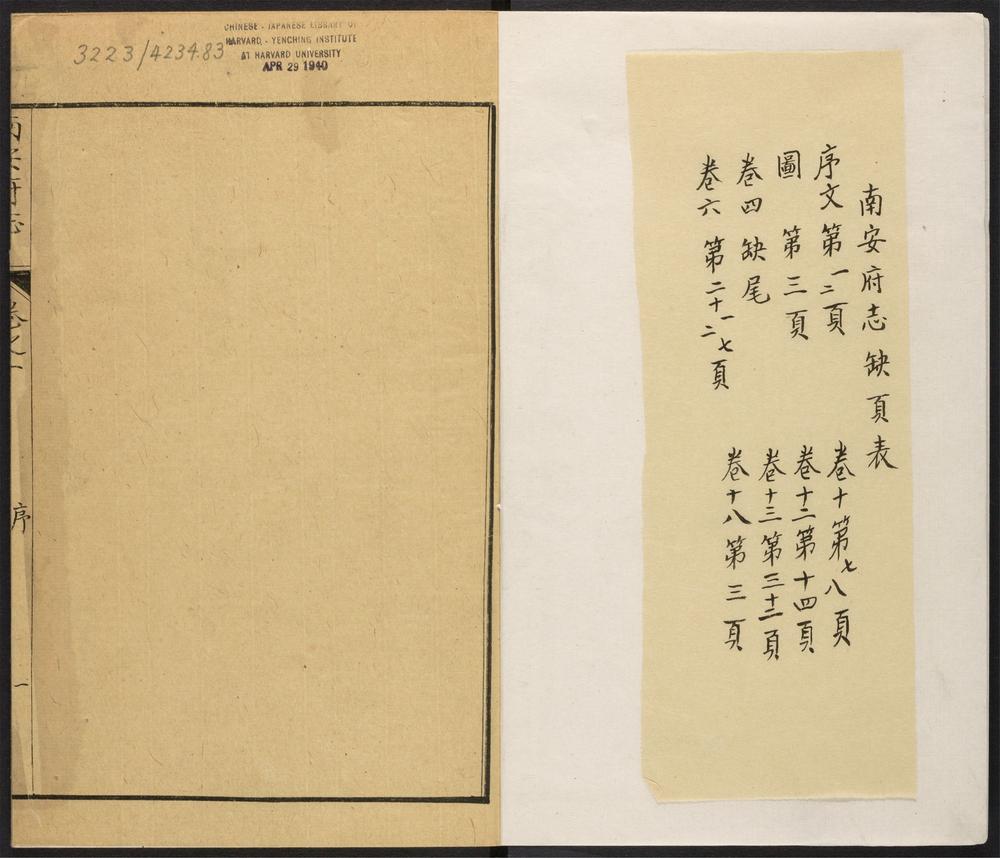 南安府志缺頁表
序文 第一二頁
圖 第三頁
卷四 缺尾
卷六 第二十一二七頁
卷十第七八頁
卷十二第十四頁
卷十三第三十二頁
卷十八第三頁
3223/4234.83
CHINESE - JAPANESE LIBRARY OF
HARVARD - YENCHING INSTITUTE
AT HARVARD UNIVERSITY
APR 29 1940
南安府志 卷之一 序 一